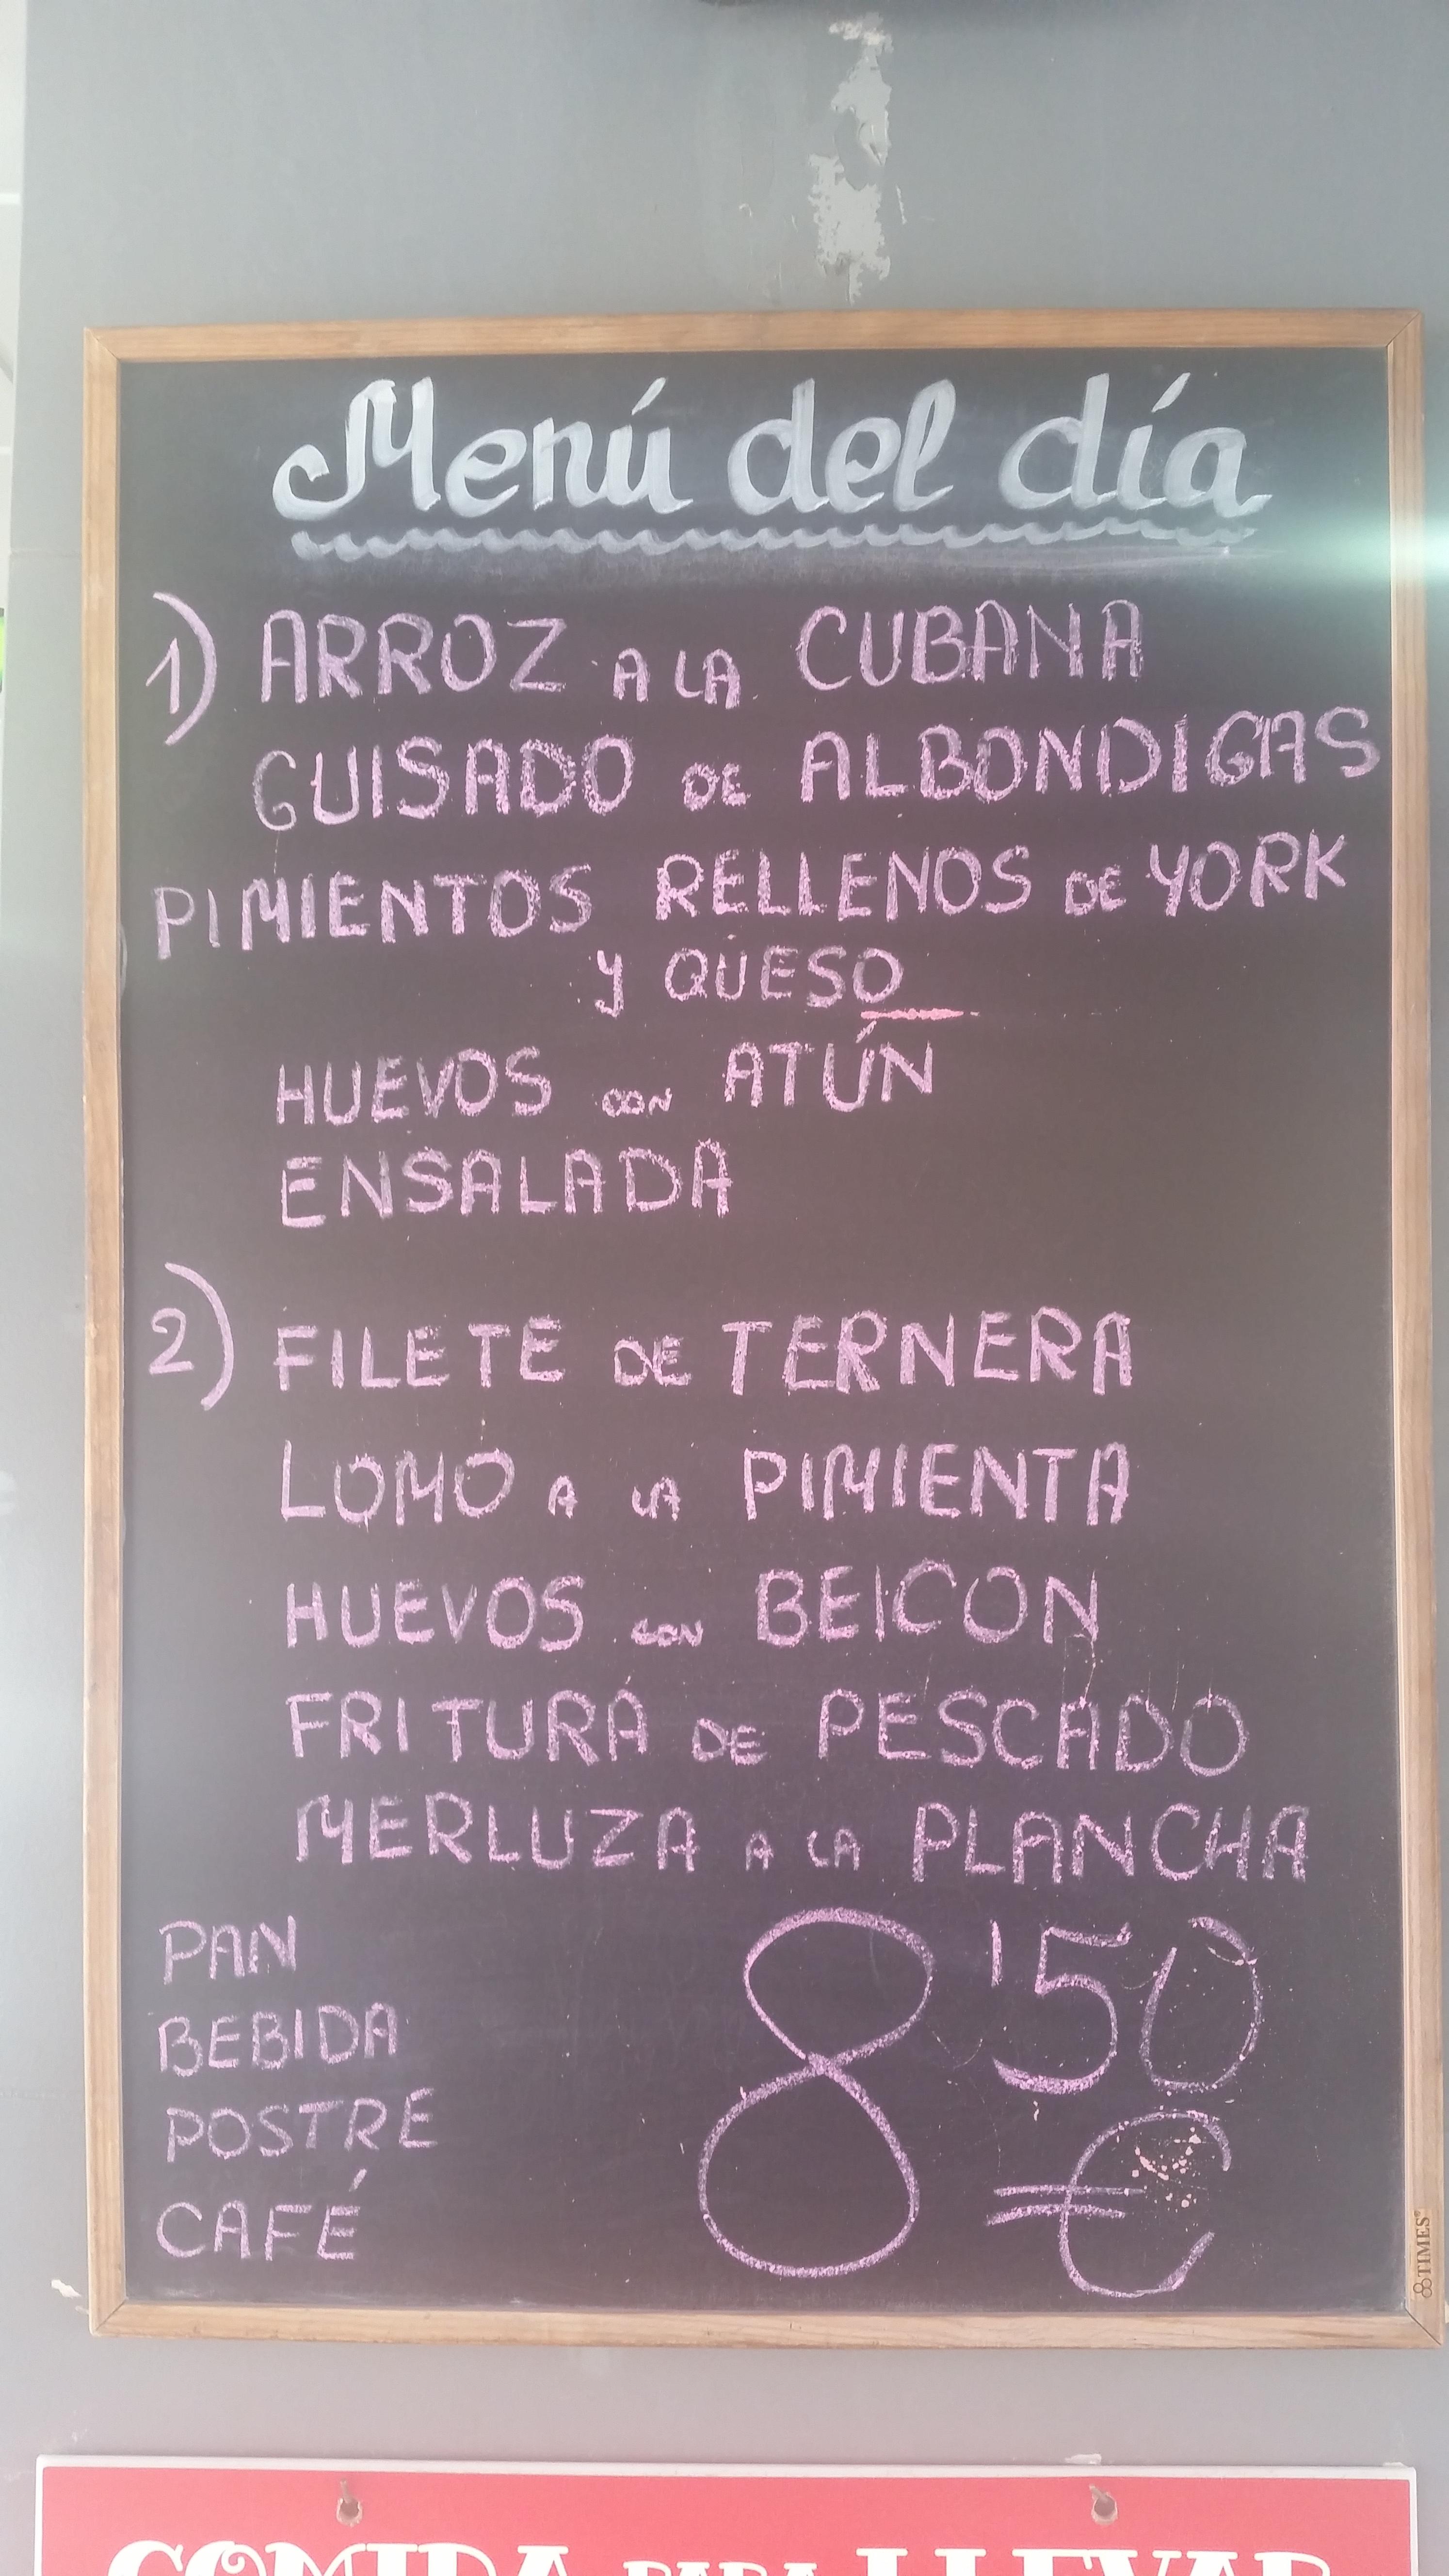 Menú del día
1) ARROZ A LA CUBANA
GUISADO DE ALBONDIGAS
PIMIENTOS RELLENOS DE YORK
Y QUESO
HUEVOS CON ATÚN
ENSALADA
2) FILETE DE TERNERA
LOMO A LA PIMIENTA
HUEVOS CON BEICON
FRITURA DE PESCADO
MERLUZA A LA PLANCHA
PAN
BEBIDA
POSTRE
CAFÉ
8'50
€
8TIMES
COMIDA PARA LLEVAR